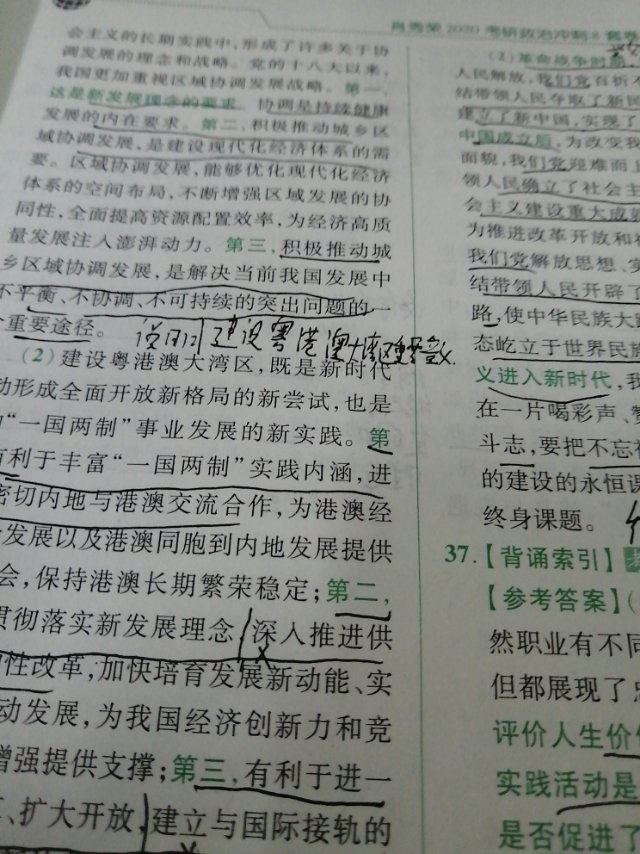 肖秀荣2020考研政治冲刺8套卷
会主义的长期实践中,形成了许多关于协
发展的理念和战略。党的十八大以来,
我国更加重视区域协调发展战略。第一,
这是新发展理念的要求。协调是持续健康
发展的内在要求。第二,积极推动城乡区
域协调发展,是建设现代化经济体系的需
要。区域协调发展,能够优化现代化经济
体系的空间布局,不断增强区域发展的协
同性,全面提高资源配置效率,为经济高质
量发展注入澎湃动力。第三,积极推动城
乡区域协调发展,是解决当前我国发展中
不平衡、不协调、不可持续的突出问题的一
重要途径。
建设粤港澳大湾区
(2)建设粤港澳大湾区,既是新时代
动形成全面开放新格局的新尝试,也是
“一国两制”事业发展的新实践。第
有利于丰富“一国两制”实践内涵,进
密切内地与港澳交流合作,为港澳经
发展以及港澳同胞到内地发展提供
会,保持港澳长期繁荣稳定;第二,
贯彻落实新发展理念,深入推进供
性改革,加快培育发展新动能、实
动发展,为我国经济创新力和竞
增强提供支撑;第三,有利于进一
、扩大开放,建立与国际接轨的
(2)革命战争时
人民解放,我们党百折不
结带领人民夺取了新民
建立了新中国,实现了
中国成立后,为改变我
面貌,我们党迎难而
领人民确立了社会主
会主义建设重大成
为推进改革开放和
我们党解放思想、实
结带领人民开辟了
路,使中华民族大
态屹立于世界民族
义进入新时代,我
在一片喝彩声、
斗志,要把不忘初
的建设的永恒课
终身课题。
37.【背诵索引】
【参考答案】(
然职业有不同
但都展现了
评价人生价值
实践活动是
是否促进了